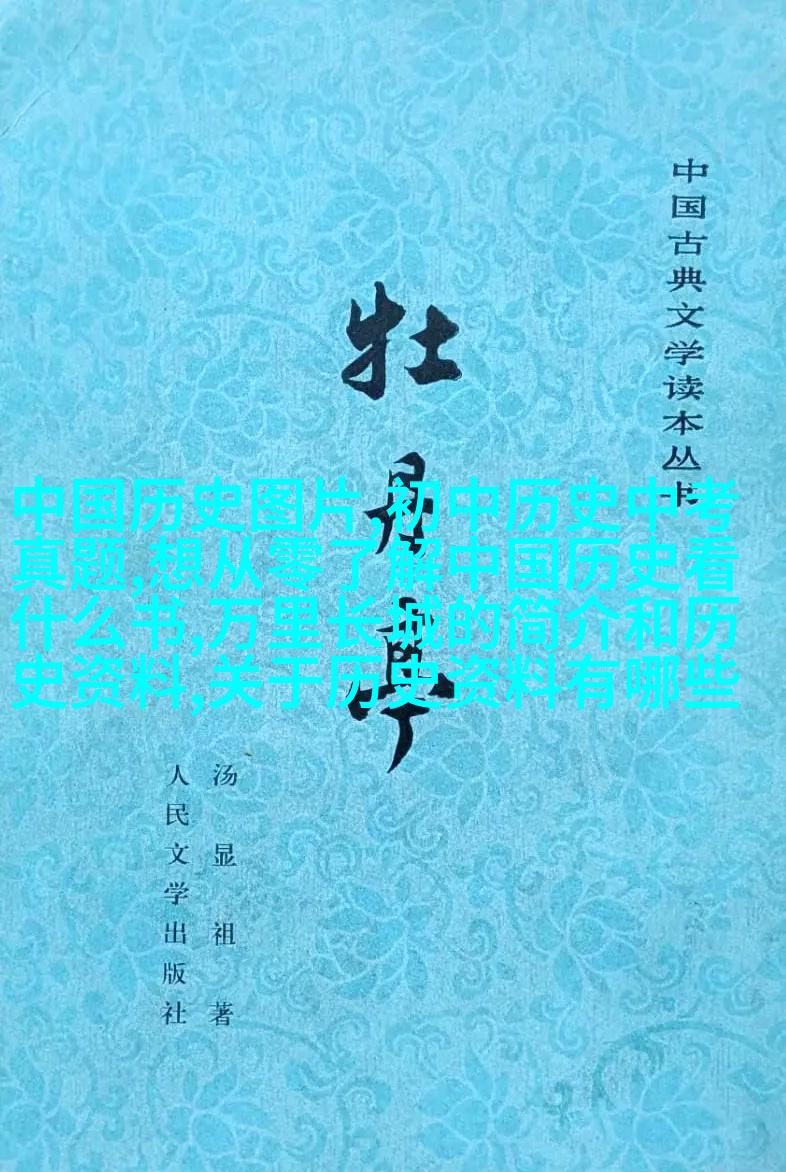 中国古典文学读本丛书
牡丹亭
中国历史图片,初中历史中考
真题,想从零了解中国历史看
什么书,万里长城的简介和历
史资料,关于历史资料有哪些
汤显祖著
人民文学出版社